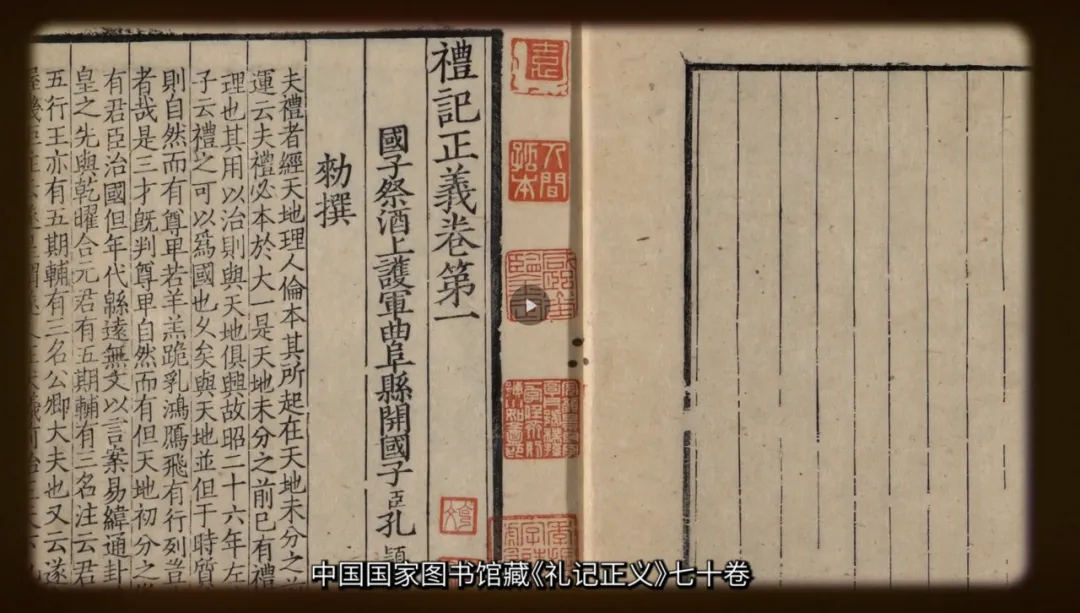 禮記正義卷第一
國子祭酒上護軍曲阜縣開國子臣孔
勑撰
夫禮者經天地理人倫本其所起在天地未分之
運云夫禮必本於大一是天地未分之前已有禮
理也其用以治則與天地俱興故昭二十六年左
子云禮之可以爲國也久矣與天地並但于時質
則自然而有尊卑若羊羔跪乳鴻鴈飛有行列豈
者哉是三才旣判尊卑自然而有但天地初分之
有君臣治國但年代緜遠無文以言案易緯通卦
皇之先與乾曜合元君有五期輔有三名注云君
五行王亦有五期輔有三名公卿大夫也又云遂
人間孤本
中国国家图书馆藏《礼记正义》七十卷